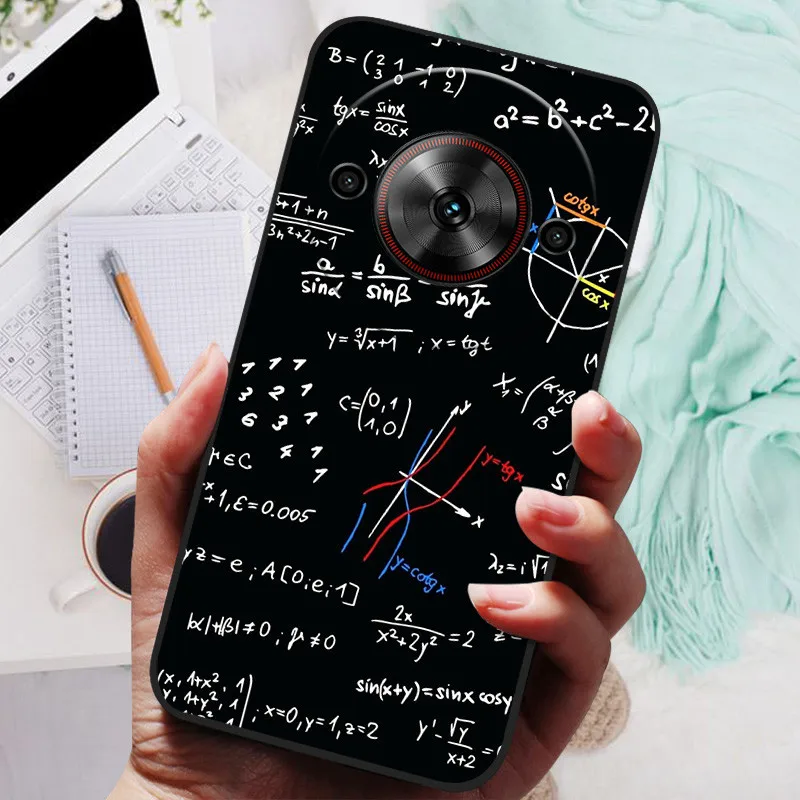 B=(2 1 -1 0
3 0 1 2)
tgx=sinx/cosx
a²=b²+c²-2
λx
5+1+n
3n²+2n-1
cotgx
x
x
cosx
a/sinα = b/sinβ = sinγ
y=∛x+1 ; x=tgt
1 1 1
3 2 1
6 3 1
4 1
1
C=(0,1
1,0)
y
x
X₁=(α+β
β
y=tgx
y=cotgx
+1,ε=0.005
yz=e ; A[0;e;1]
λ₂=i√1
|α|+|β|≠0 ; γ≠0
2x/x²+2y²=2
(x, 1+x², 1)
y, 1+y², 1
; x=0,y=1,z=2
sin(x+y)=sinx cosy
y'-√y/x+2=